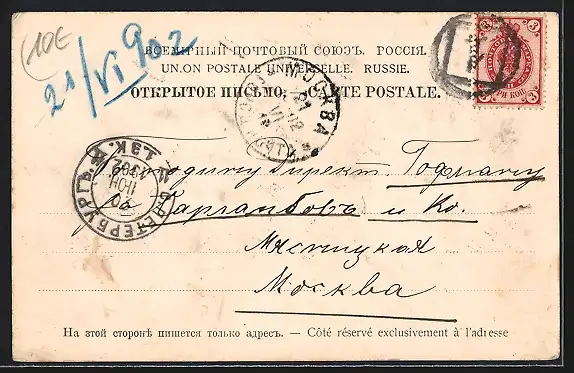 10E
21/VI 902
ВСЕМІРНЫЙ ПОЧТОВЫЙ СОЮЗЪ. РОССІЯ.
UNION POSTALE UNIVERSELLE. RUSSIE.
ОТКРЫТОЕ ПИСЬМО. — CARTE POSTALE.
3 3
3 3
ТРИ КОП
МОСКВА
21
VI
С.ПЕТЕРБУРГЪ
ІЮН
1.Э.К.
Господину Директ. Гофману
Гарламбовъ и Ко.
Мясницкая
Москва
На этой сторонѣ пишется только адресъ. — Côté réservé exclusivement à l'adresse